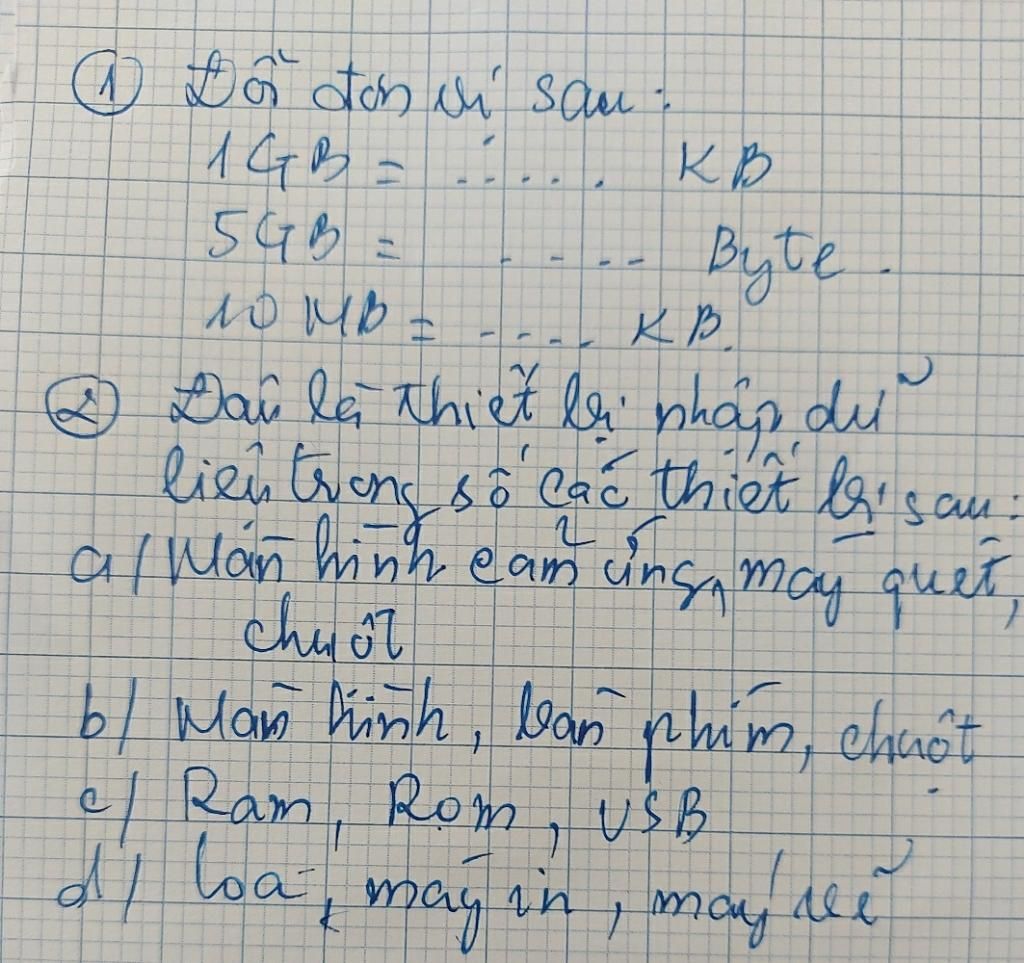 ① Đổi đơn vị sau:
1GB = ...... KB
5GB = ..... Byte.
10 MB = ..... KB.
② Đâu là thiết bị nhập dữ
liệu trong số các thiết bị sau:
a/ Màn hình cảm ứng, máy quét,
chuột
b/ Màn hình, bàn phím, chuột
c/ Ram, Rom, USB
d/ loa, máy in, máy vẽ